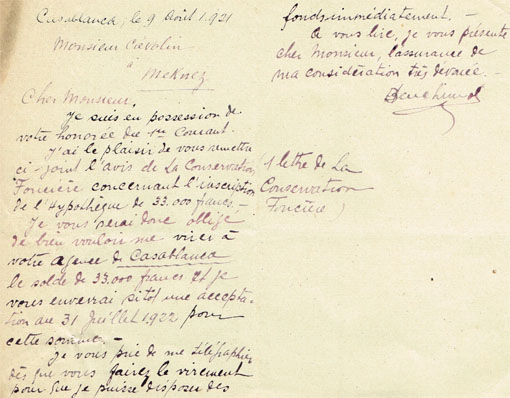 Casablanca, le 9 Août 1921
Monsieur
à
Meknez
Cher Monsieur,
Je suis en possession de
votre honorée du 1er Courant.
J'ai le plaisir de vous remettre
ci-joint l'avis de La Conservation
Foncière concernant l'inscription
de l'Hypothèque de 33.000 francs -
Je vous serai donc obligé
de bien vouloir me virer à
votre agence de Casablanca
le solde de 33.000 francs et je
vous enverrai sitôt une accepta-
tion au 31 Juillet 1922 pour
cette somme. -
Je vous prie de me télégraphier
dès que vous fairez le virement
pour que je puisse disposer des
fonds immédiatement. -
A vous lire, je vous présente
cher Monsieur, l'assurance de
ma considération très dévouée -
1 lettre de La
Conservation
Foncière)